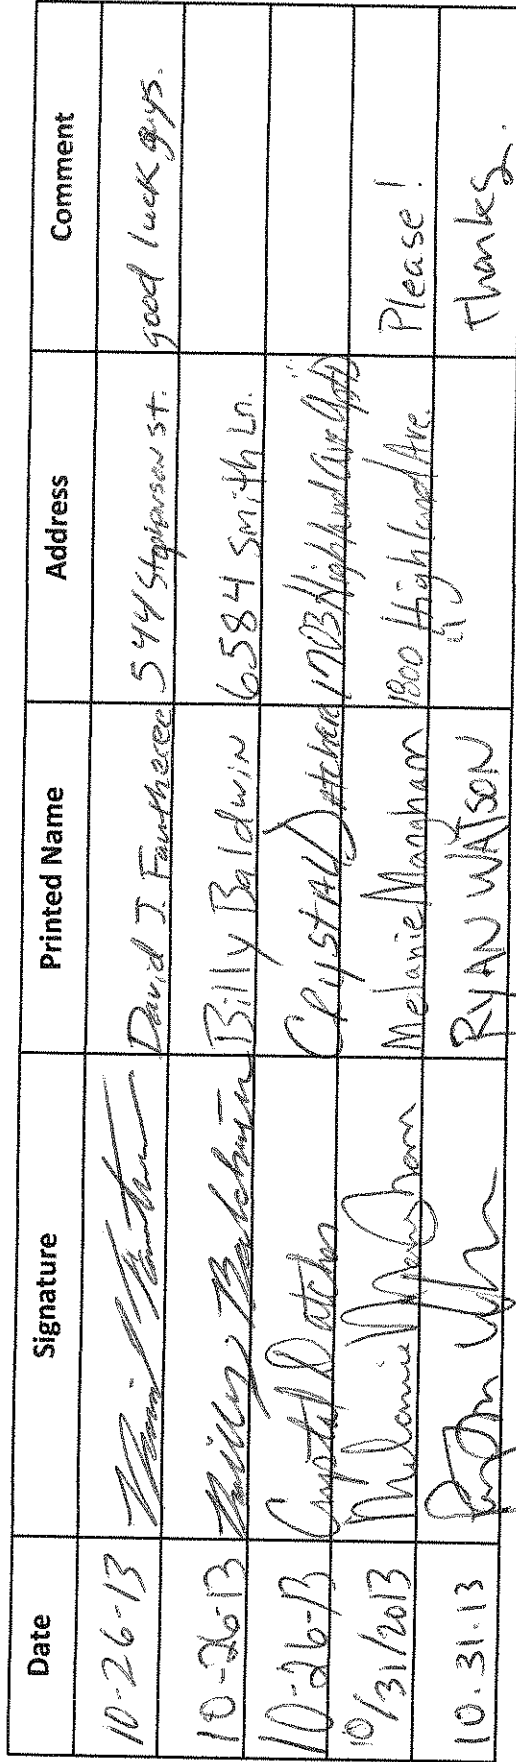 Date Signature Printed Name Address Comment
10-26-13 David J. 544 Stephenson St. good luck guys.
10-26-13 Billy Baldwin Billy Baldwin 6584 Smith Ln.
10-26-13 Crystal Datcher Crystal Datcher 1703 Highland Ave
10/31/2013 Melanie Mangham Melanie Mangham 1800 Highland Ave. Please!
10.31.13 RYAN WATSON " Thanks.